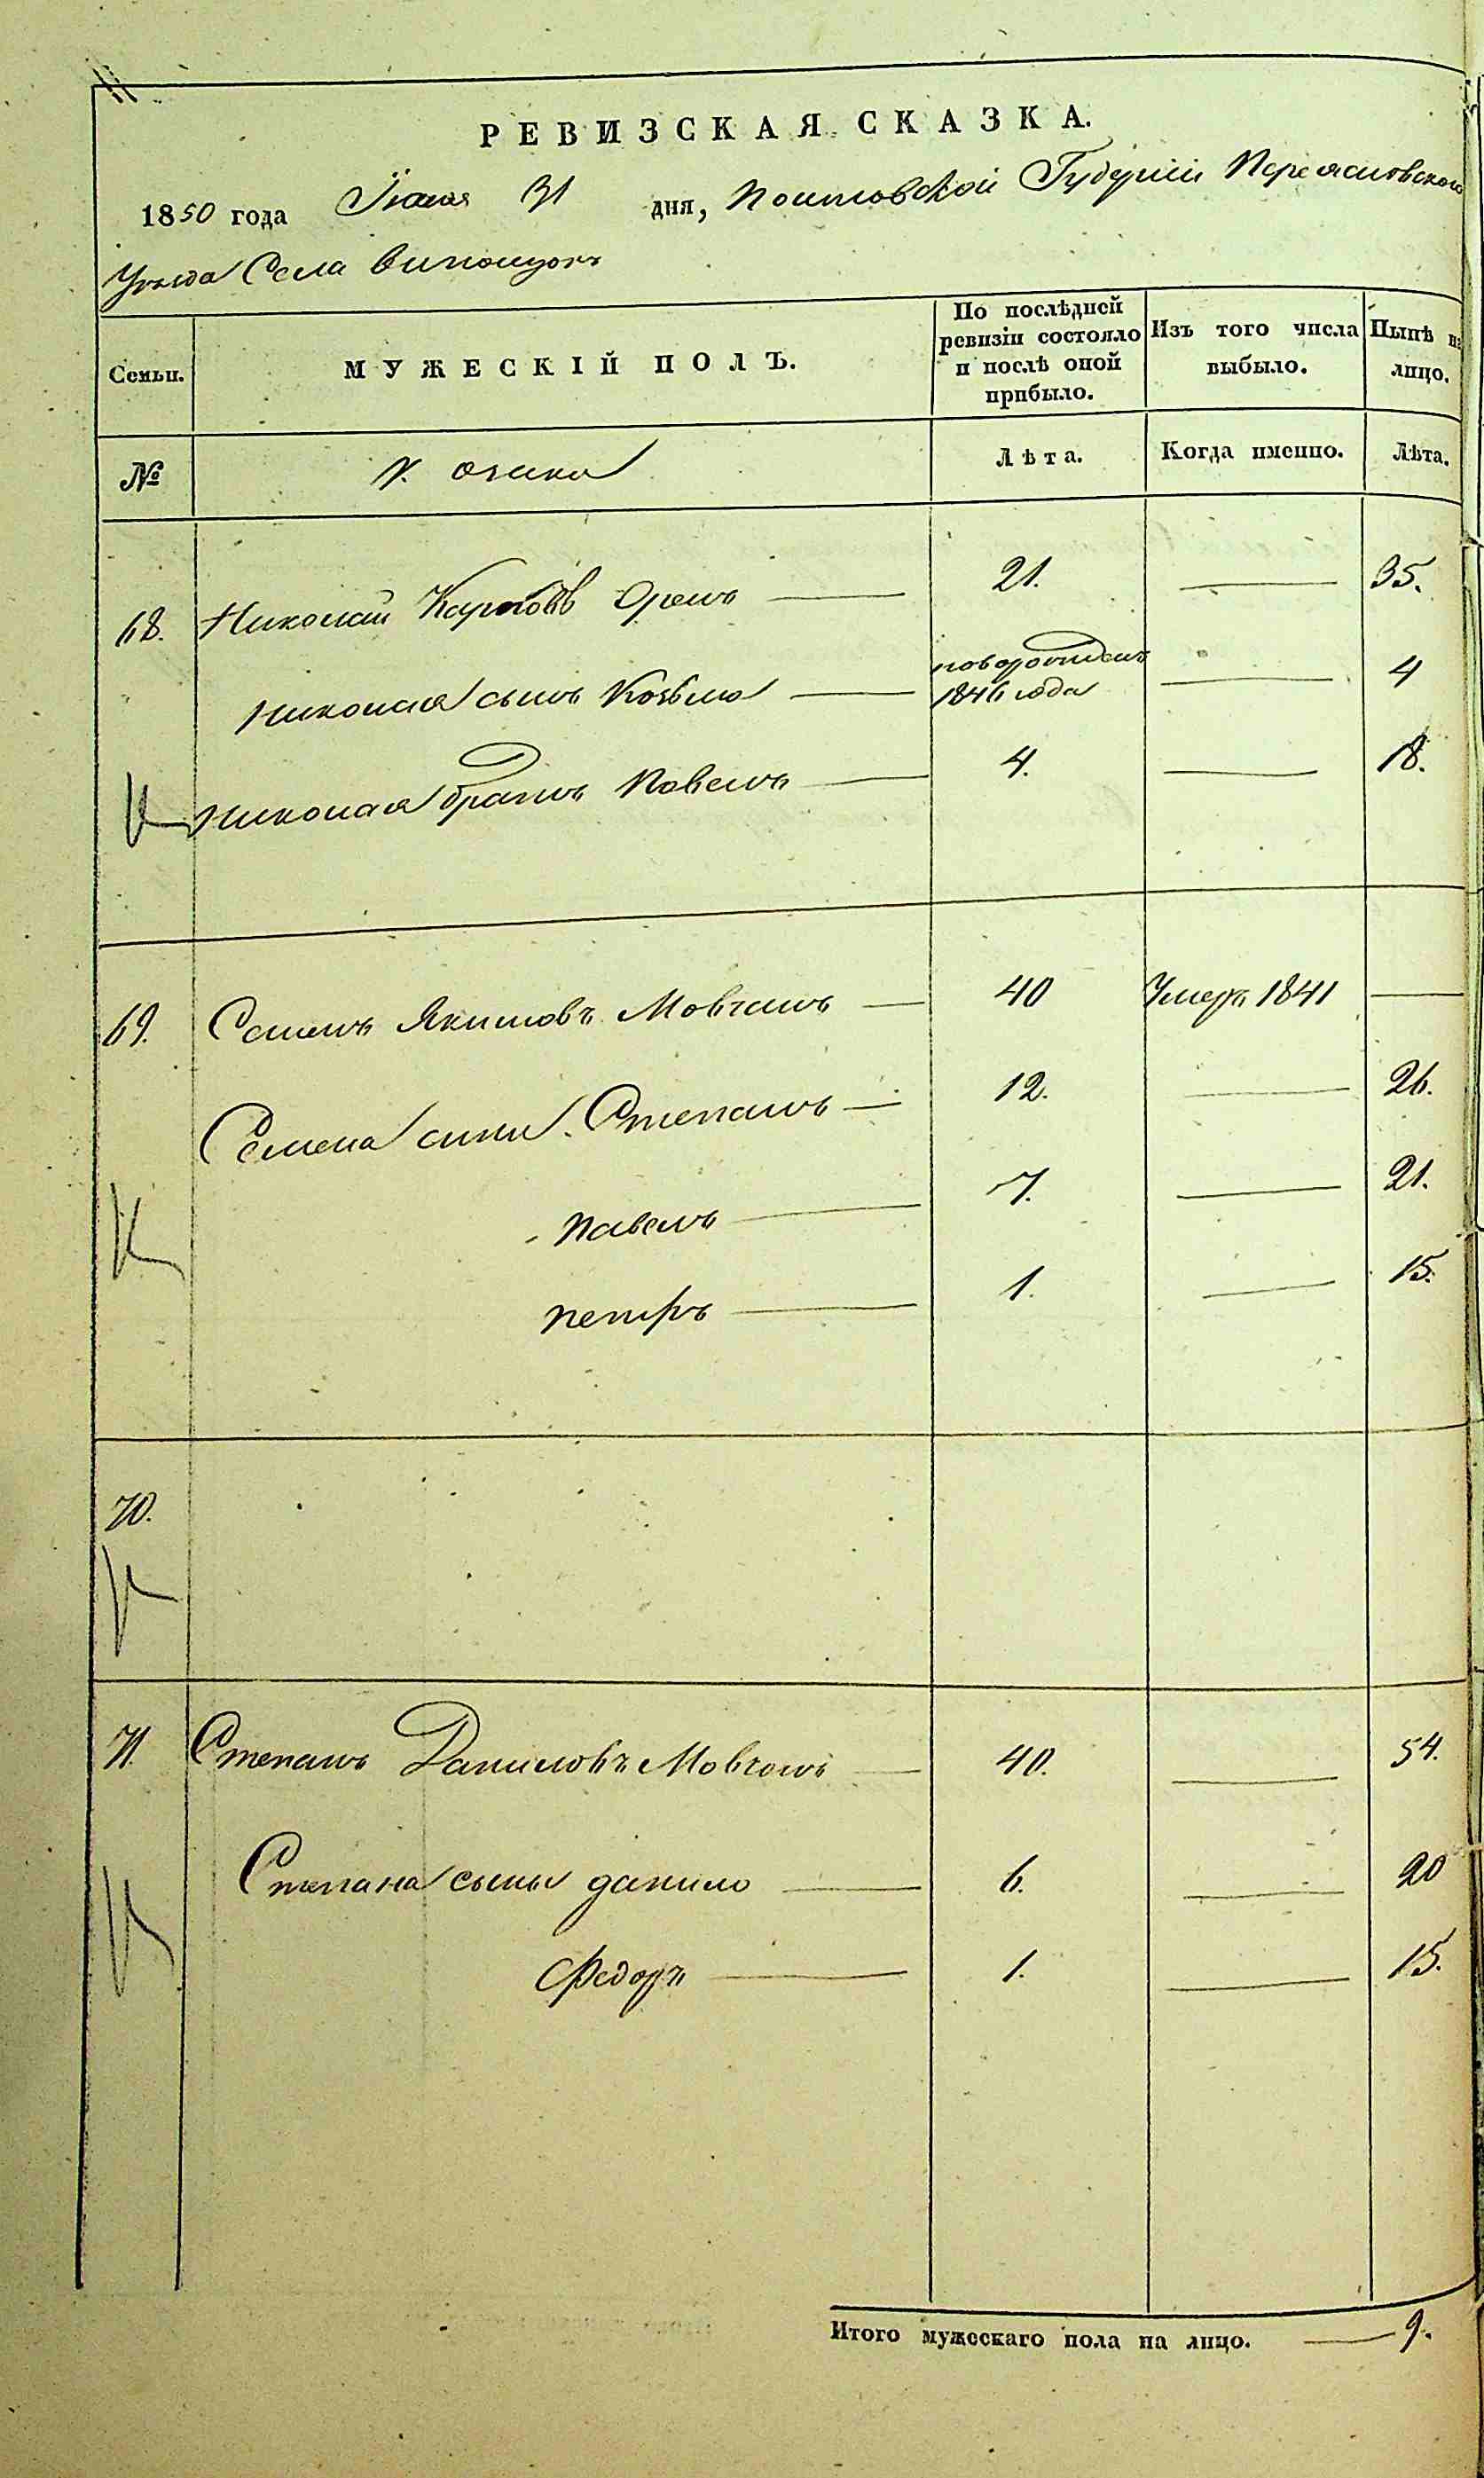 РЕВИЗСКАЯ СКАЗКА.
1850 года Іюля 31 дня, Полтавской Губерніи Переяславского
Уезда Села
Семьи. МУЖЕСКІЙ ПОЛЪ. По послѣдней ревизіи состояло и послѣ оной прибыло. Изъ того числа выбыло. Нынѣ на лицо.
№ Лѣта. Когда именно. Лѣта.
68. Николай Карповъ 21. — 35.
Николая сынъ Козьма новорожденъ 1846 года — 4
Николая братъ Павелъ 4. — 18.
69. Семенъ Якимовъ Мовчанъ 40 Умеръ 1841 —
Семена сини Степанъ 12. — 26.
Павелъ 7. — 21.
Петръ 1. — 15.
70.
71 Степанъ Даниловъ Мовчанъ 40. — 54.
Степана сыны Данило 6. — 20
Федоръ 1. — 15.
Итого мужескаго пола на лицо. — 9.